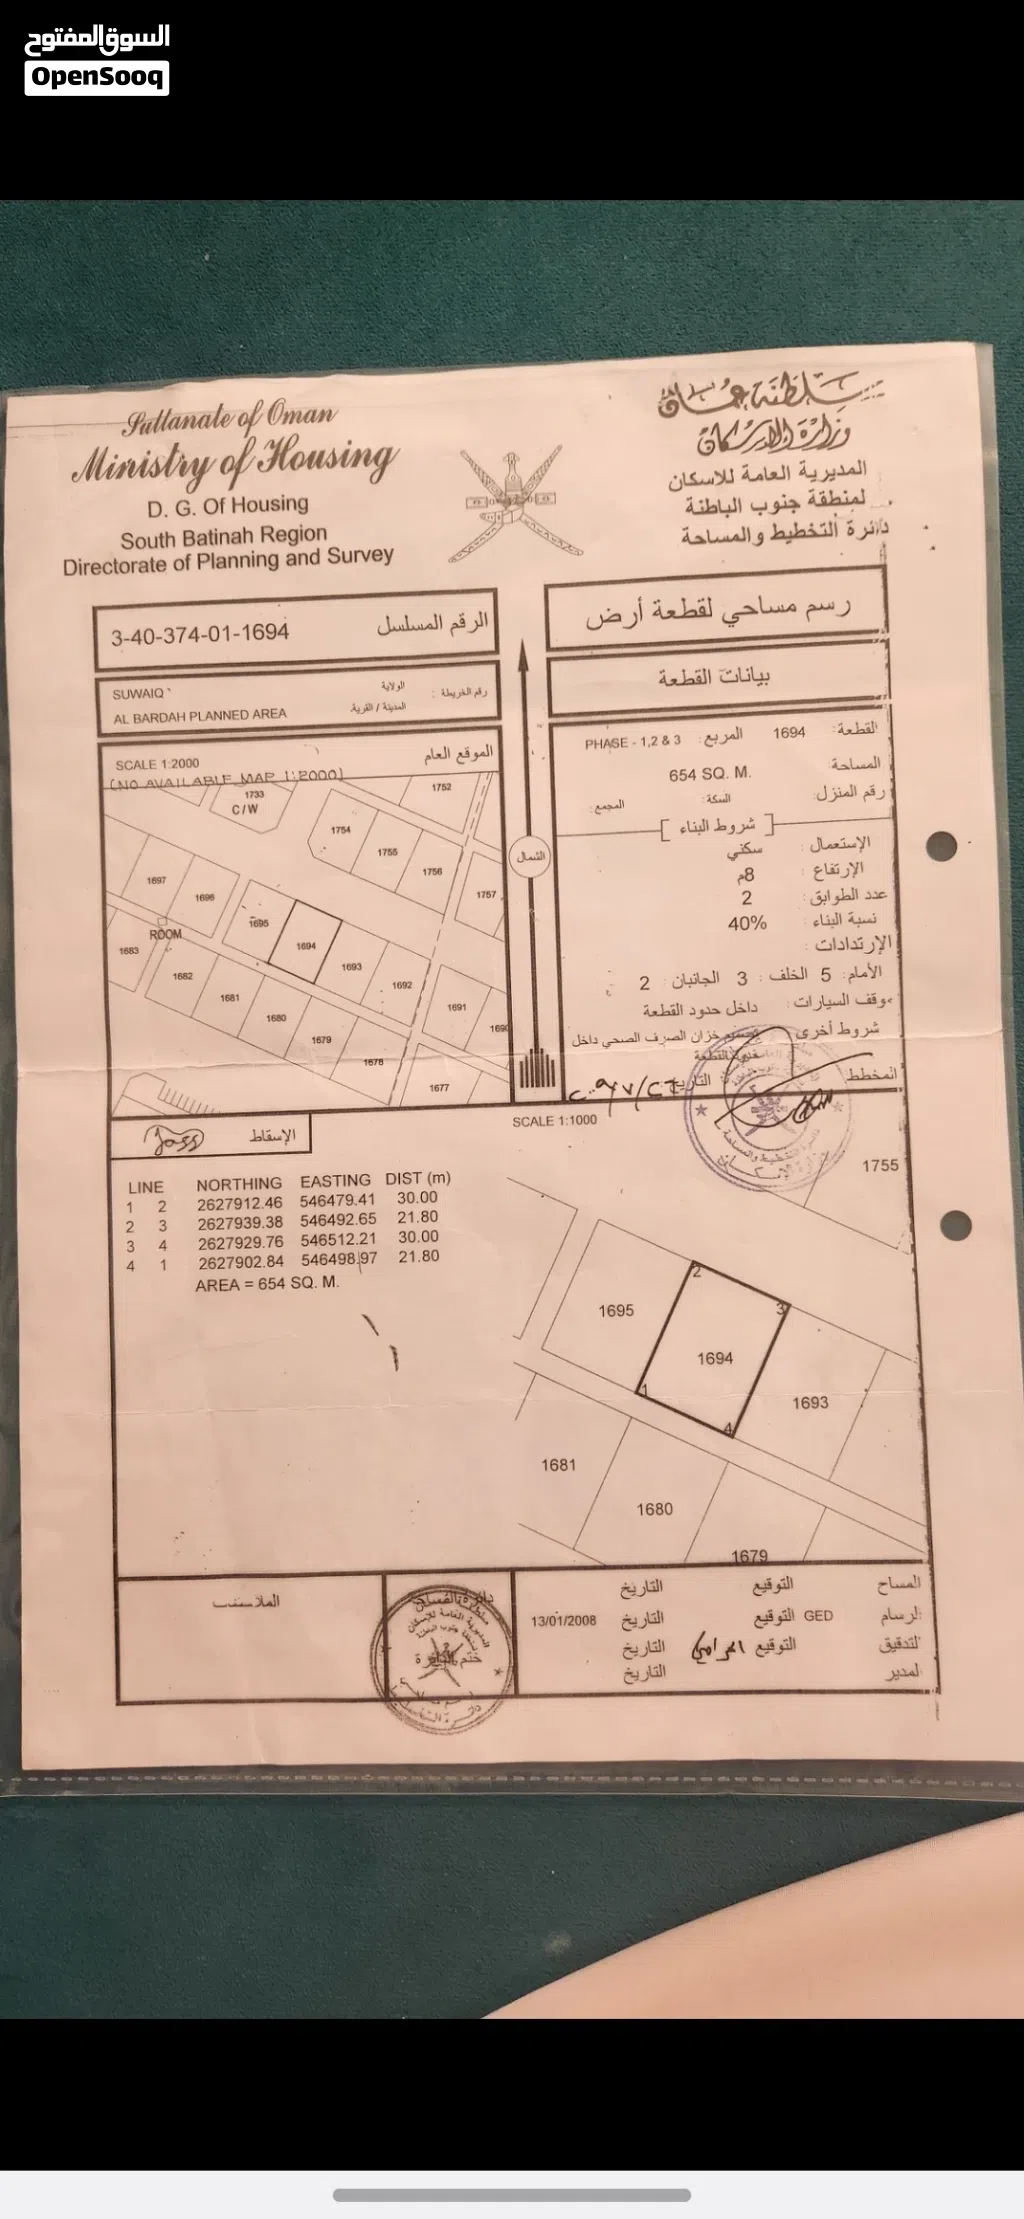 السوق المفتوح
OpenSooq
Sultanate of Oman
Ministry of Housing
D. G. Of Housing
South Batinah Region
Directorate of Planning and Survey
سلطنة عمان
وزارة الإسكان
المديرية العامة للاسكان
لمنطقة جنوب الباطنة
دائرة التخطيط والمساحة
3-40-374-01-1694 الرقم المسلسل
رسم مساحي لقطعة أرض
SUWAIQ الولاية رقم الخريطة :
AL BARDAH PLANNED AREA المدينة / القرية
بيانات القطعة
SCALE 1:2000 الموقع العام
(NO AVAILABLE MAP 1:2000)
القطعة: 1694 المربع: PHASE - 1,2 & 3
المساحة: 654 SQ. M.
رقم المنزل: السكة: المجمع:
[ شروط البناء ]
الإستعمال : سكني
الإرتفاع : 8م
عدد الطوابق : 2
نسبة البناء : 40%
الإرتدادات :
الأمام: 5 الخلف: 3 الجانبان: 2
موقف السيارات: داخل حدود القطعة
شروط أخرى: خزان الصرف الصحي داخل
القطعة
المخطط التاريخ
1733
C/W
1752
1754
1755
1756
1757
1697
1696
1695
1694
1693
1692
1691
1683
ROOM
1682
1681
1680
1679
1678
1677
الشمال
SCALE 1:1000
الإسقاط
LINE NORTHING EASTING DIST (m)
1 2 2627912.46 546479.41 30.00
2 3 2627939.38 546492.65 21.80
3 4 2627929.76 546512.21 30.00
4 1 2627902.84 546498.97 21.80
AREA = 654 SQ. M.
1755
1695
2
3
1694
1
4
1693
1681
1680
1679
المساح التوقيع التاريخ
الرسام GED التوقيع التاريخ 13/01/2008
التدقيق التوقيع التاريخ
المدير التاريخ
ختم الدائرة